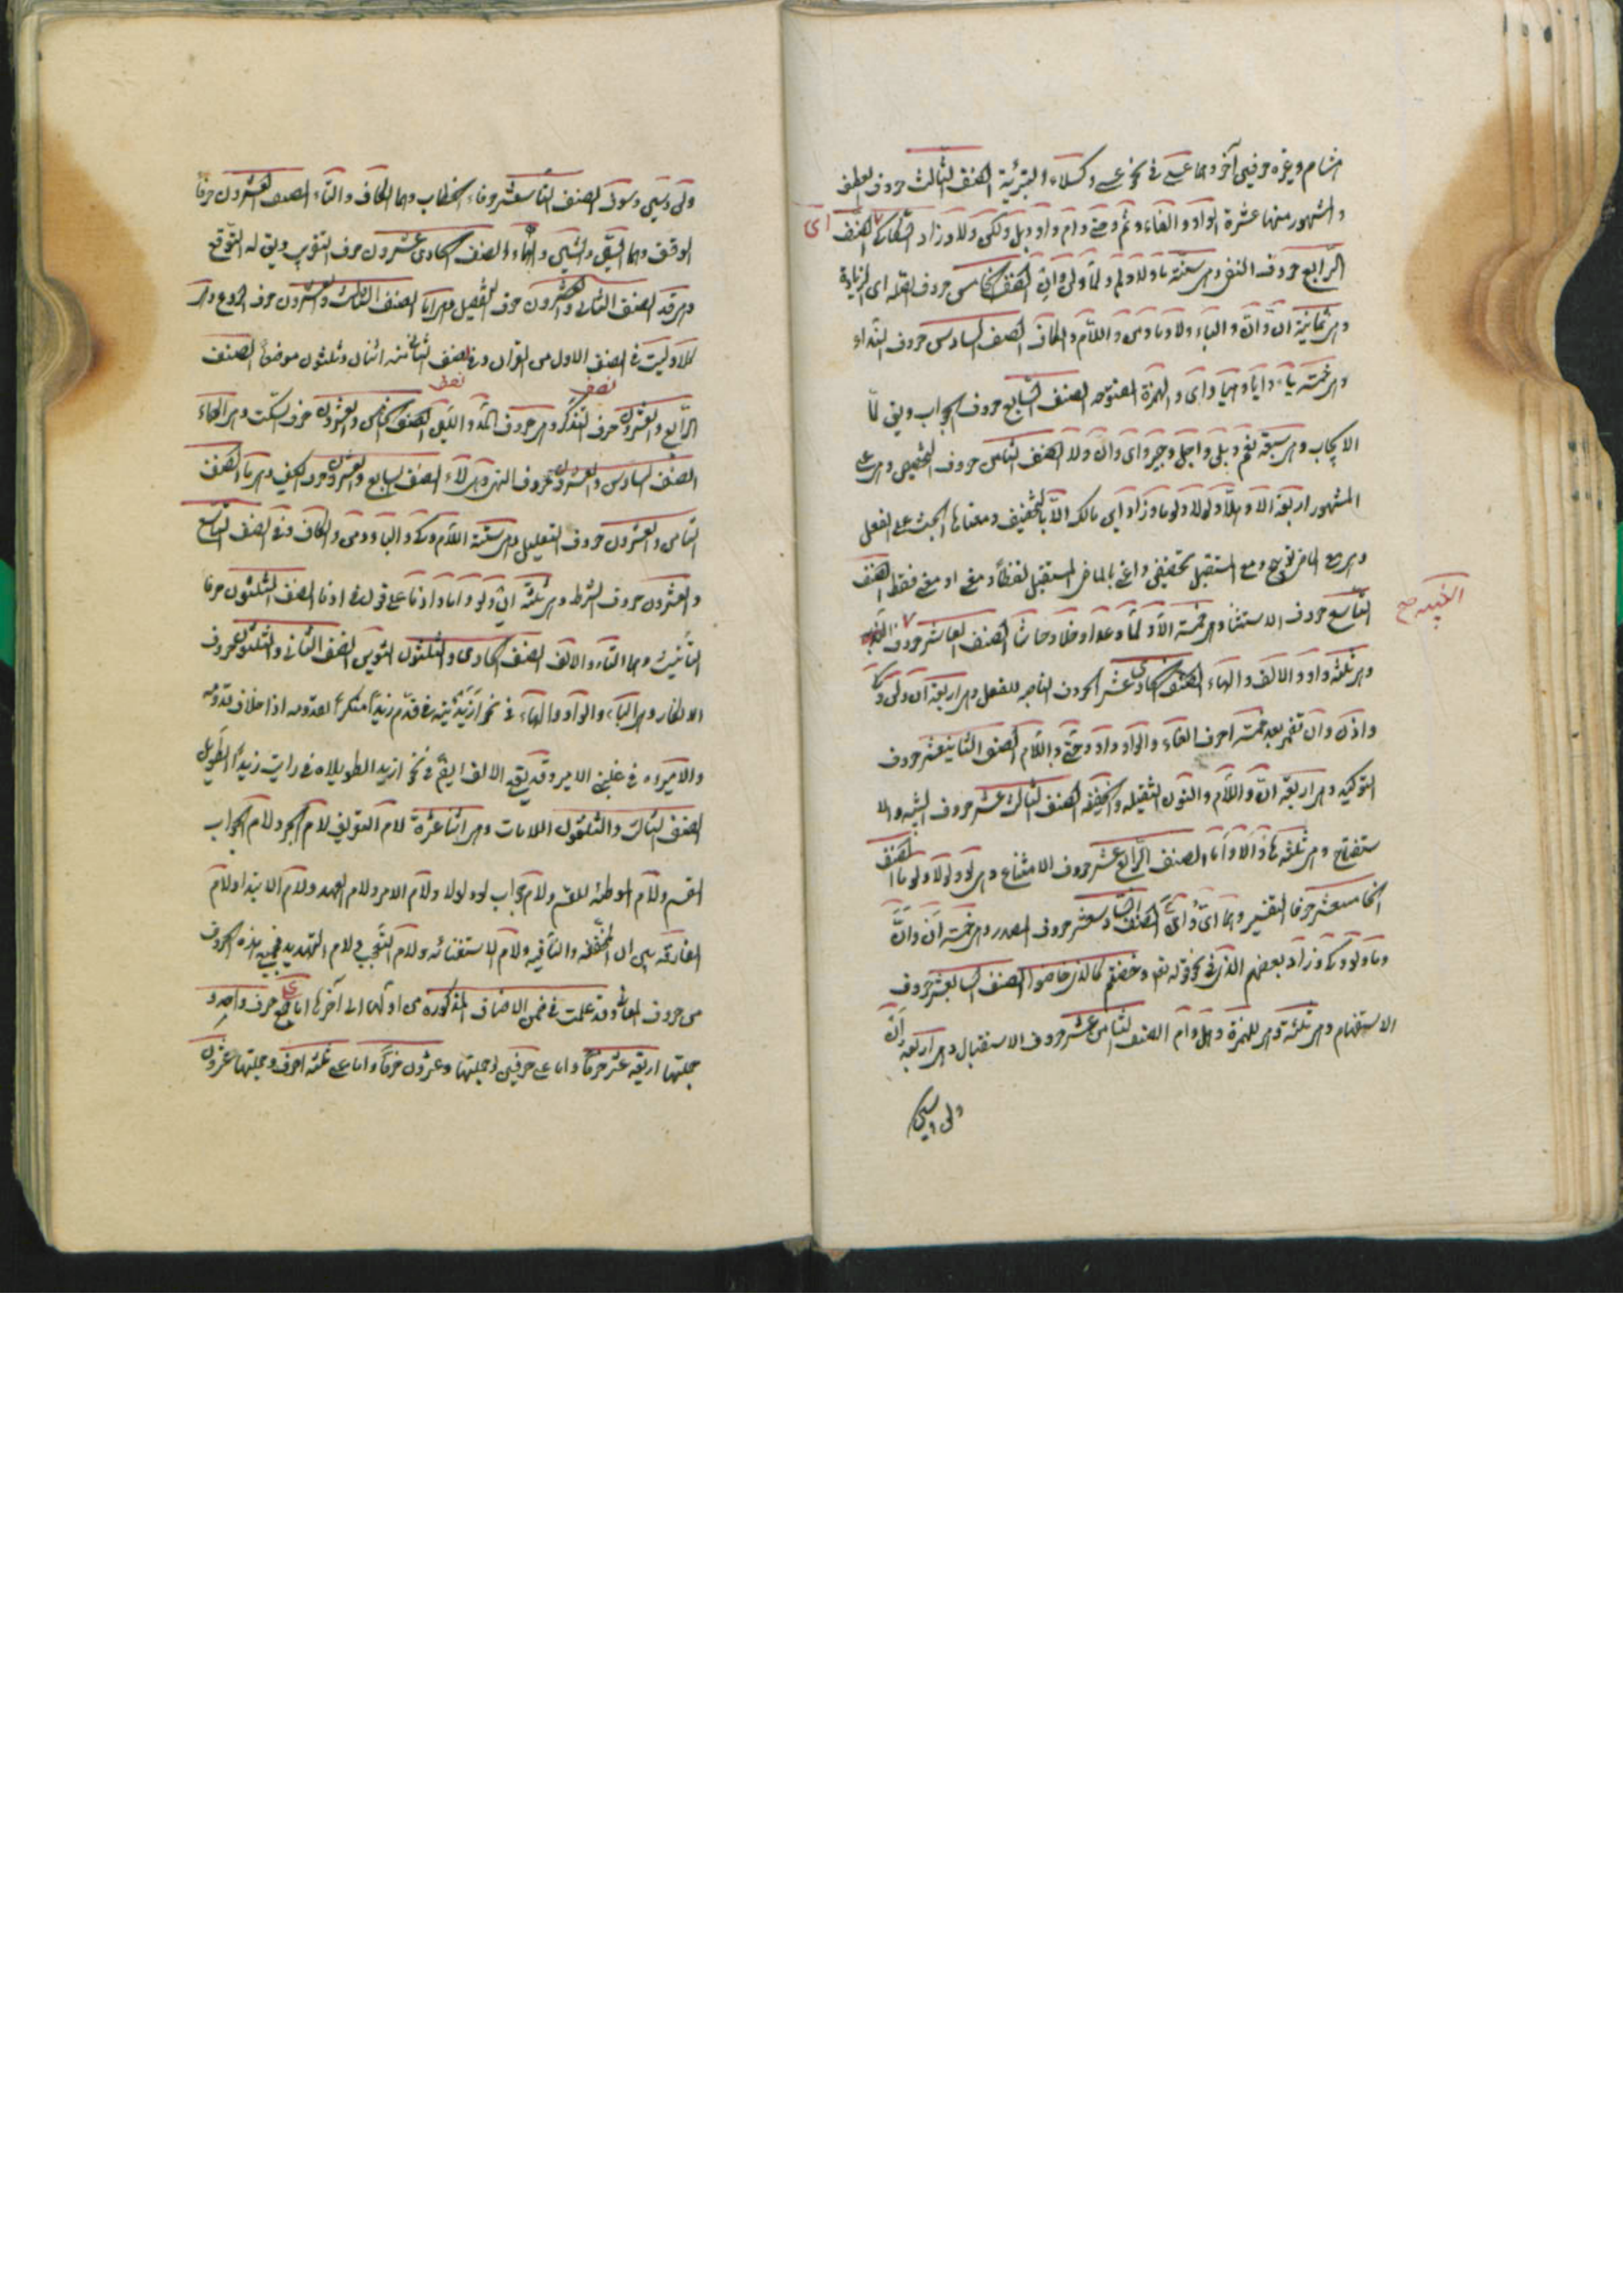 هشام وغيره حرفين آخر وهما عسى في نحو عسى وكسلاء التبرئة الصنف الثالث حروف العطف
والمشهور منها عشرة الواو والفاء وثم وحتى وام واو وبل ولكن ولا وزاد السكاكي اى الصنف
الرابع حروف النفى وهى ستة ما ولا ولم ولما ولن وان الصنف الخامس حروف الصلة اى الزيادة
وهى ثمانية ان وان والباء ولا وما ومن واللام والكاف الصنف السادس حروف النداء
وهى خمسة ياء وايا وهيا واى والهمزة المفتوحه الصنف السابع حروف الجواب ويق لها
الايجاب وهى سبعة نعم وبلى واجل وجير واى وان ولا الصنف الثامن حروف التحضيض وهى على
المشهور اربعة الا وهلا ولولا ولوما وزاد ابن مالك الا بالتخفيف ومعناها الحث على الفعل
وهى مع الماضى توبيخ ومع المستقبل تحضيض واعنى بالماضى المستقبل لفظا ومعنى او معنى فقط الصنف
التاسع حروف الاستثنا وهى خمسة الا ولما وعدا وخلا وحاشا الصنف العاشر حروف الندبه
وهى ثلثة واو والالف والهاء الصنف الحادى عشر الحروف الناصبه للفعل وهى اربعة ان ولن وكى
واذن وان تضمر بعد خمسة احرف الفاء والواو واو وحتى واللام الصنف الثانيعشر حروف
التوكيد وهى اربعة ان واللام والنون الثقيله والخفيفه الصنف الثالث عشر حروف التنبيه والا
ستفتاح وهى ثلثة ها والا واما الصنف الرابع عشر حروف الامتناع وهى لو ولولا ولوما الصنف
الخامسعشر حرفا التفسير وهما اى وان الصنف السادسعشر حروف المصدر وهى خمسة ان وان
وما ولو وكى وزاد بعضهم الذى في نحو قوله تعا وخضتم كالذى خاضوا الصنف السابعشر حروف
الاستفهام وهى ثلثة وهى الهمزة وهل وام الصنف الثامن عشر حروف الاستقبال وهى اربعة ان
ولن وسين
ولن وسين وسوف الصنف التاسعشر حرفاء الخطاب وهما الكاف والتاء الصنف العشرون حرفا
الوقف وهما السين والشين والهاء الصنف الحادى عشرون حرف التقريب ويق له التوقع
وهى قد الصنف الثانى والعشرون حرف التفصيل وهى اما الصنف الثالث والعشرون حرف الردع وهى
كلا وليت في الصنف الاول من القران وفي الصنف الثانى منه اثنان وثلثون موضعا الصنف
الرابع والعشرون حرف التذكر وهى حروف المد واللين الصنف الخامس والعشرون حرف السكت وهى الهاء
الصنف السادس والعشرون حروف النهى وهى لاء الصنف السابع والعشرون حرف الكف وهى ما الصنف
الثامن والعشرون حروف التعليل وهى ستة اللام وكى والبا ومن والكاف وفى الصنف التاسع
والعشرون حروف الشرط وهى ثلثة ان ولو واما واذما على قول في اذما الصنف الثلثون حرفا
التانيث وهما التاء والالف الصنف الحادى والثلثون التنوين الصنف الثانى والثلثون حروف
الانكار وهى الياء والواو والهاء في نحو
والاميروه في غلبنى الامير وقد يقع الالف ايضا في نحو ازيد الطويلاه في رايت زيدا الطويل
الصنف الثالث والثلثون اللامات وهى اثنا عشرة لام التعريف لام الجر ولام الجواب
القسم ولام الموطئه للقسم ولام جواب لو ولولا ولام الامر ولام العهد ولام الابتدا ولام
الفارقه بين ان المخففه والنافيه ولام الاستغاثه ولام التعجب ولام التهديد فجميع هذه الحروف
من حروف المعانى وقد علمت في ضمن الاصناف المذكوره من اولها الى آخرها اما على حرف واحد و
جملتها اربعة عشر حرفا واما على حرفين وجملتها وعشرون حرفا واما على ثلثه احرف وجملتها عشرون